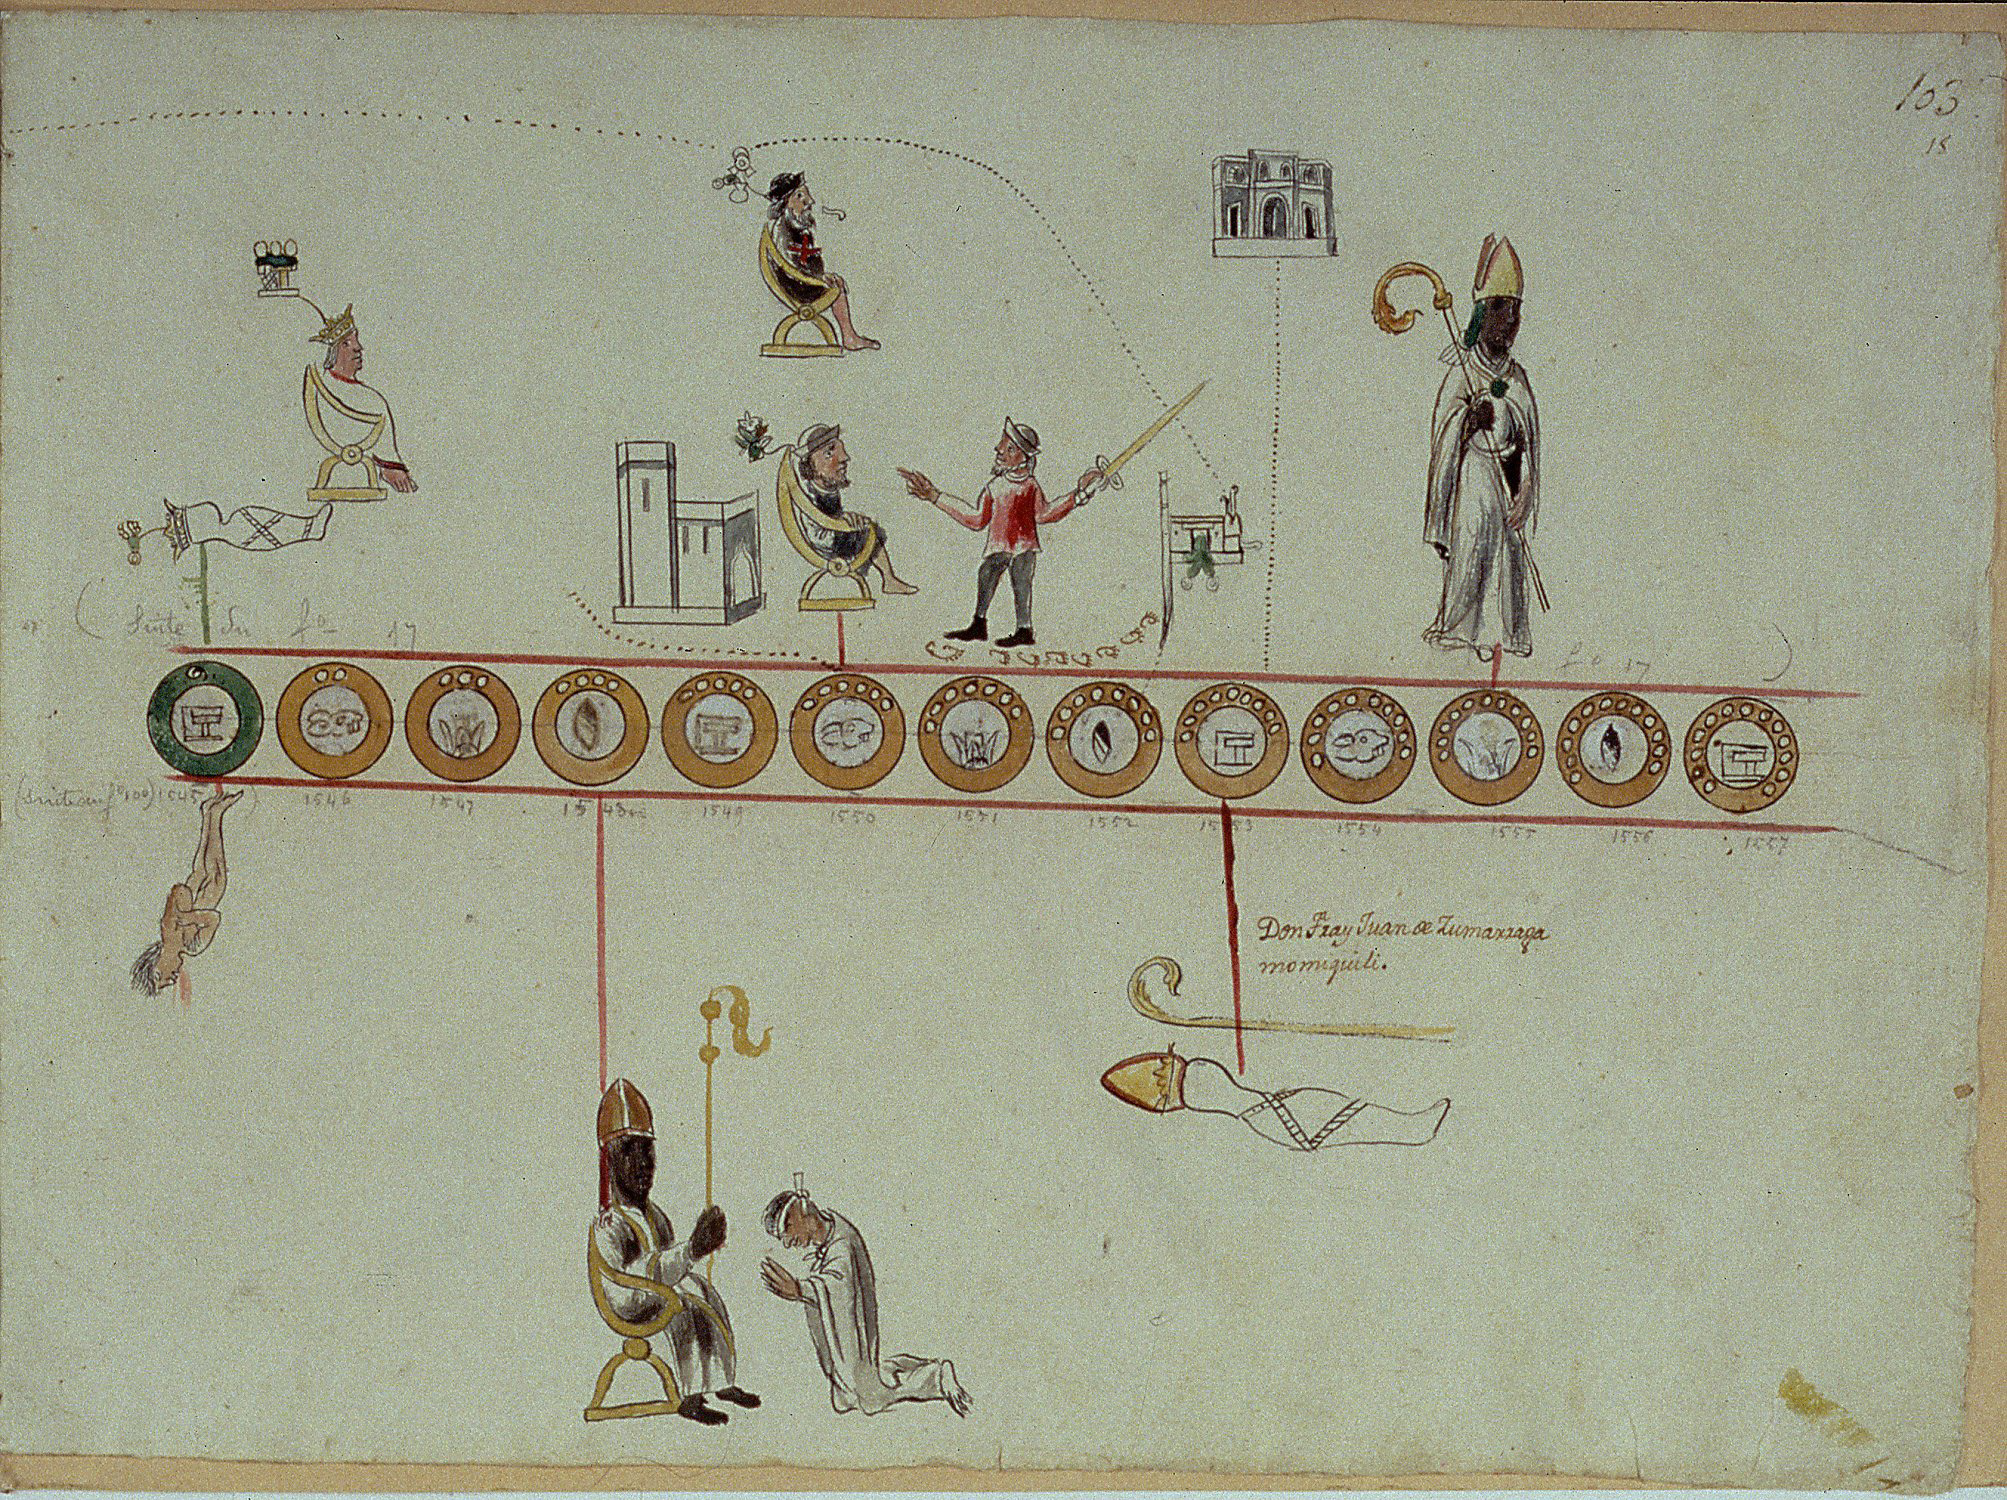 103
18
(Suite du fo 17
fo 17 )
(Suite au fo 100) 1545 1546 1547 1548 1549 1550 1551 1552 1553 1554 1555 1556 1557
Don Fray Juan de Zumarraga
momiquili.